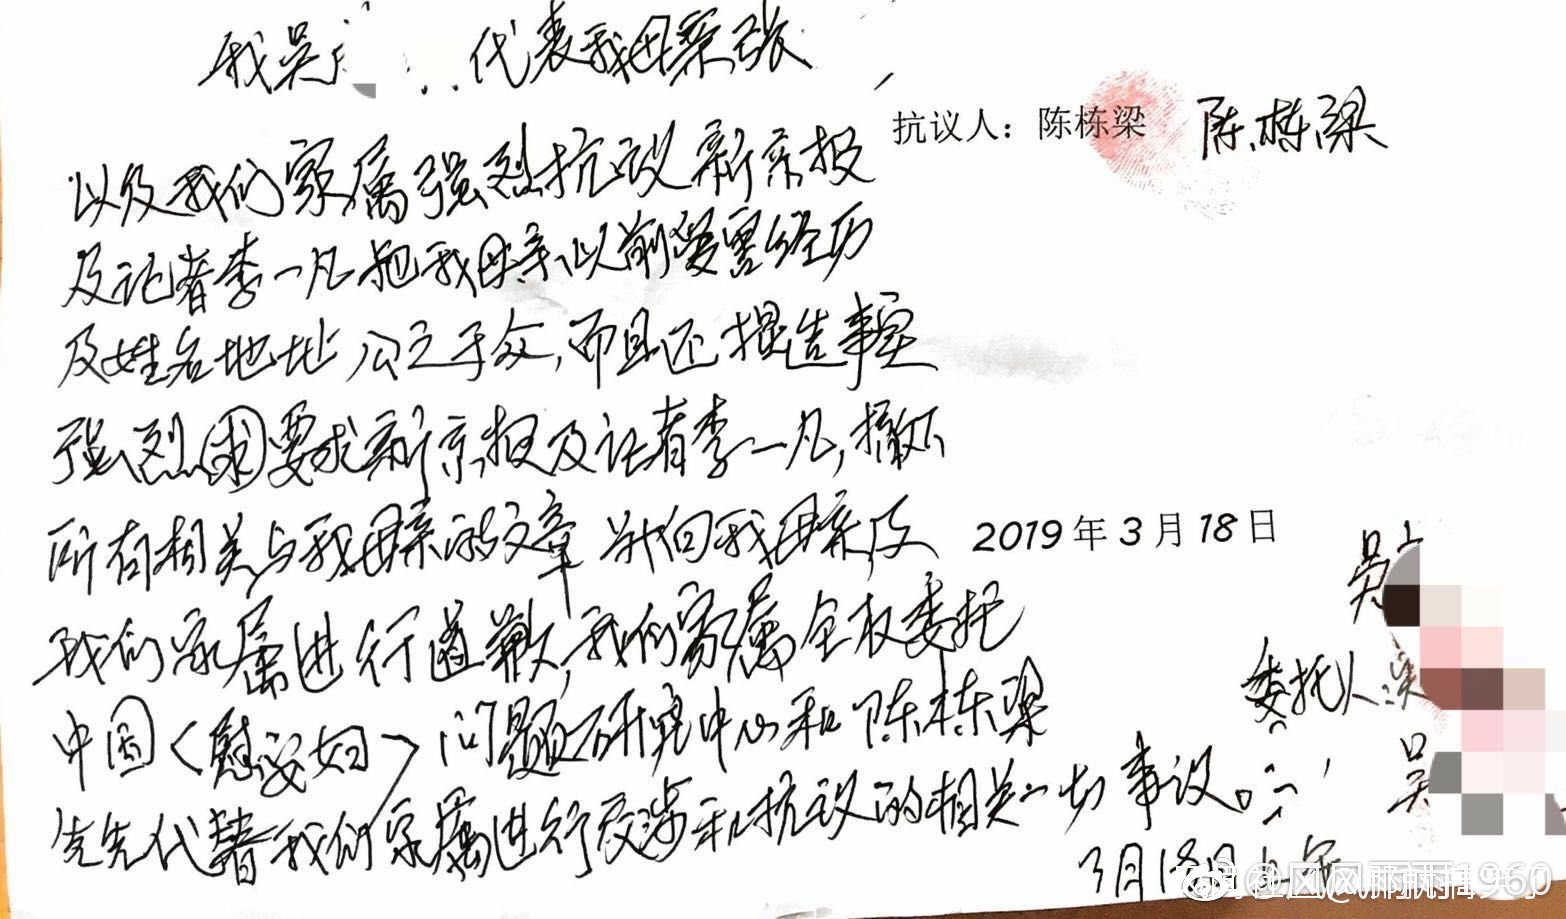 我吴 代表我母亲张
抗议人：陈栋梁 陈栋梁
以及我们家属强烈抗议新京报
及记者李一凡把我母亲以前受害经历
及姓名地址公之于众，而且还捏造事实
强烈 要求新京报及记者李一凡，撤下
所有相关与我母亲的文章 并向我母亲及
2019年3月18日
我们家属进行道歉，我们家属全权委托
中国〈慰安妇〉问题研究中心和陈栋梁
先生代替我们家属进行交涉和抗议的相关一切事议。
吴
委托人：
吴
3月18日上午